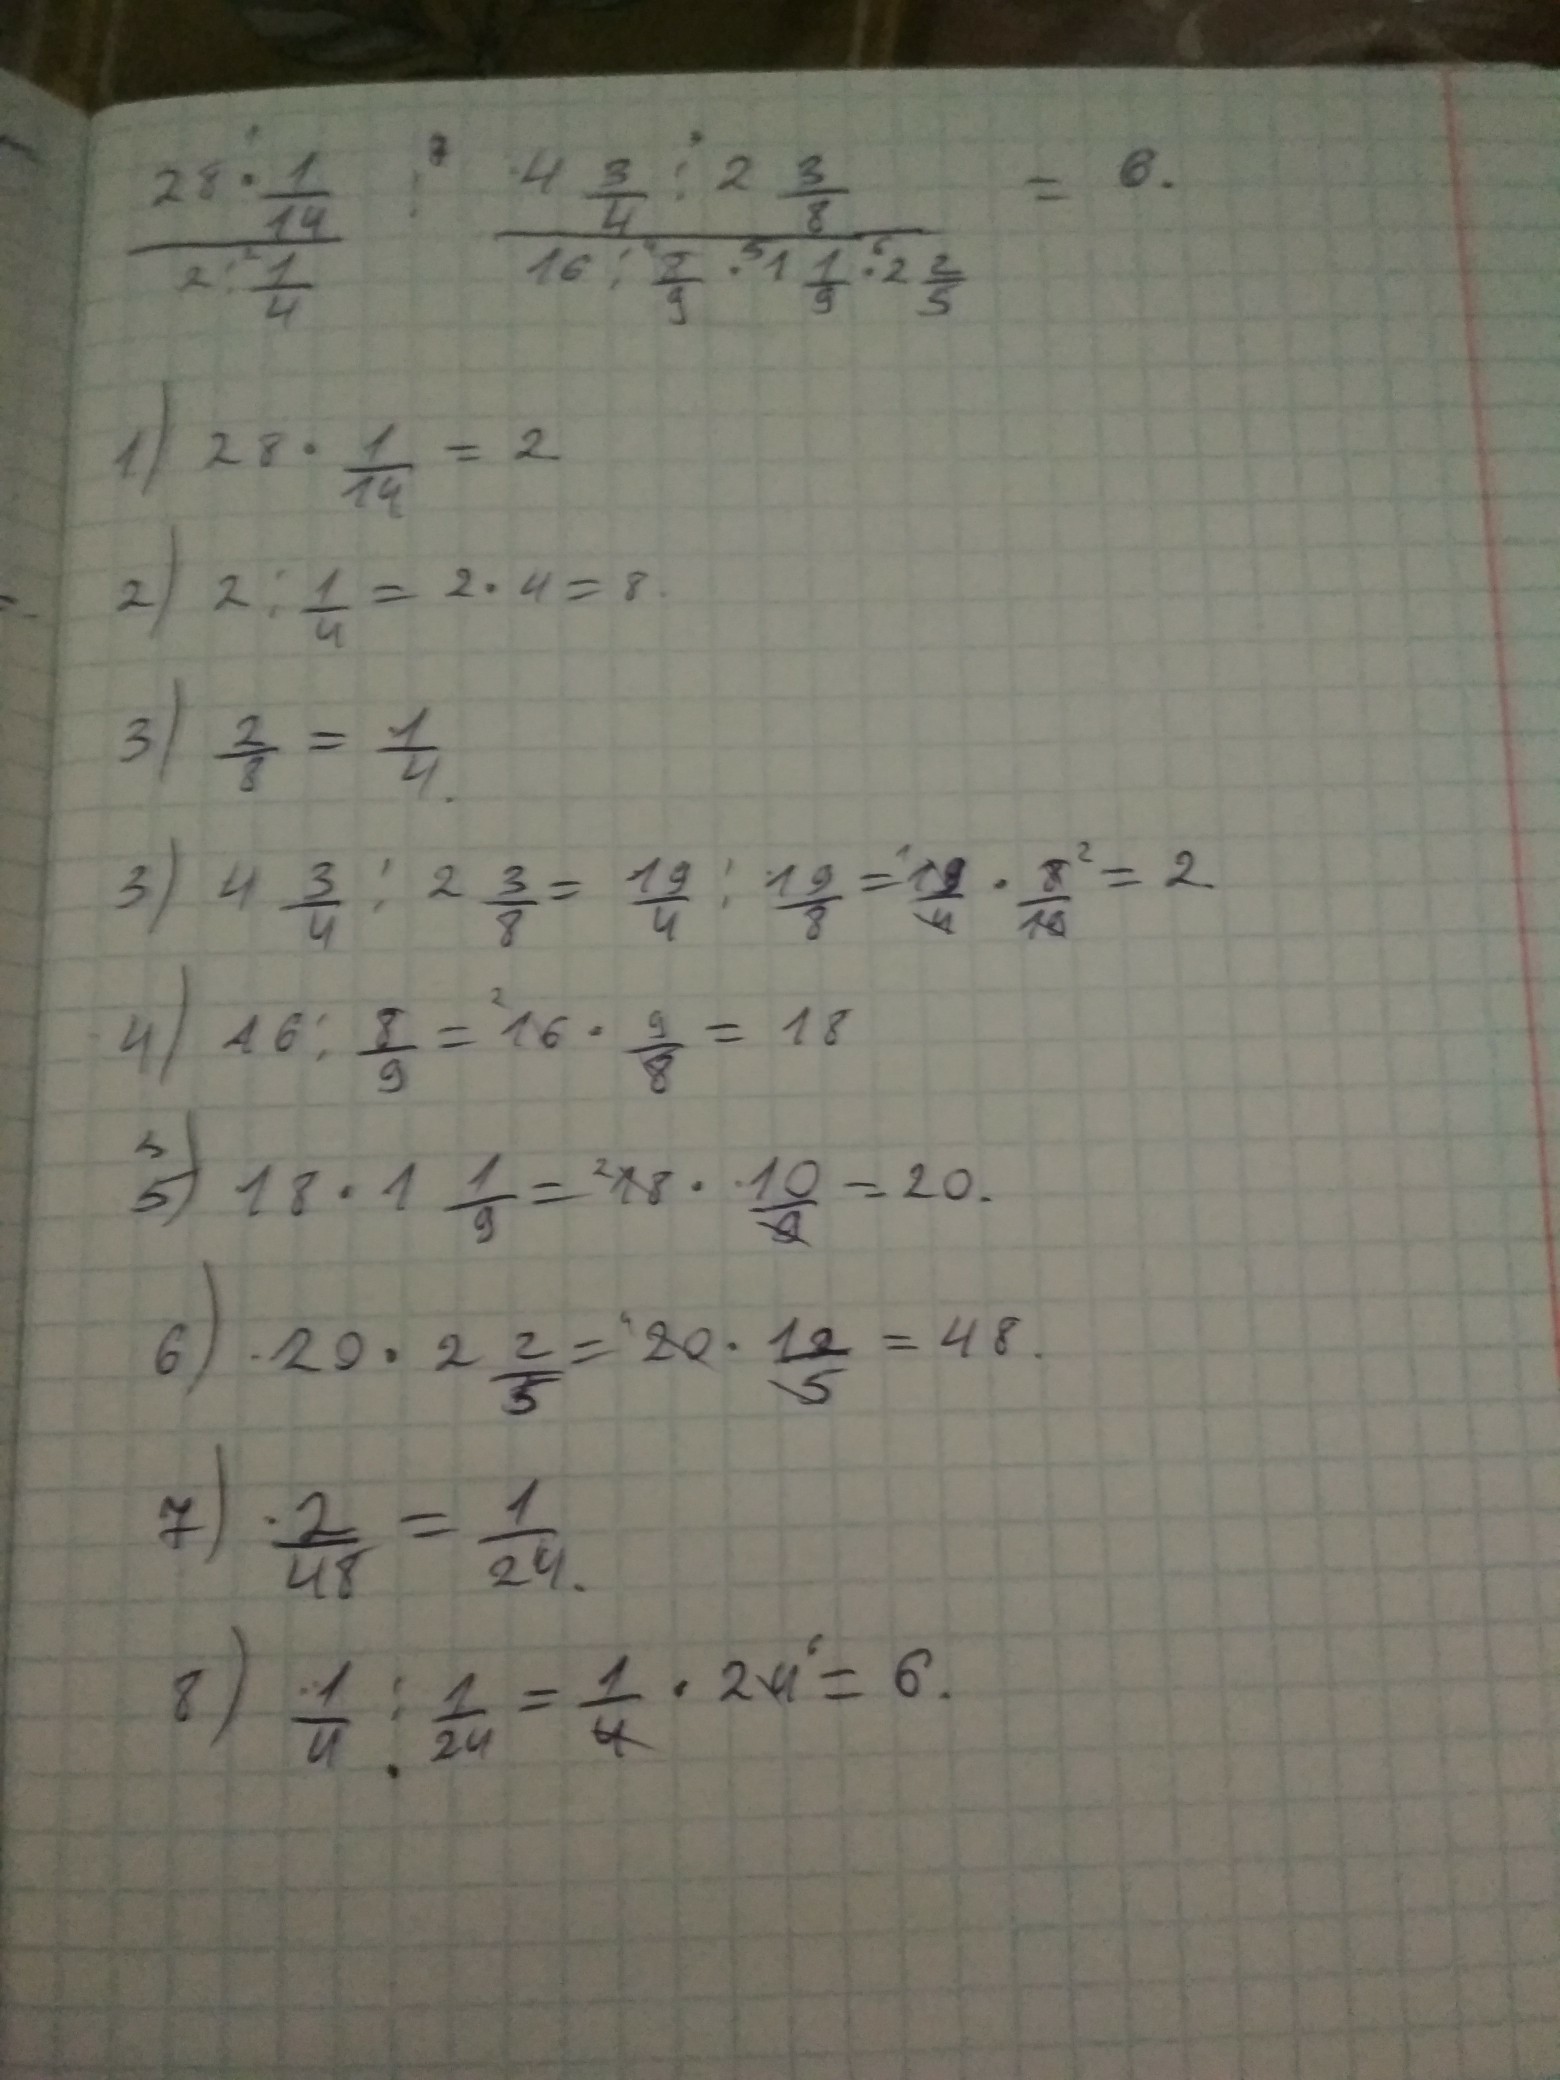 28 · 1/14 / 2 : 1/4 : 4 3/4 : 2 3/8 / 16 : 8/9 · 1 1/9 · 2 2/5 = 6.
1) 28 · 1/14 = 2
2) 2 : 1/4 = 2 · 4 = 8.
3) 2/8 = 1/4.
3) 4 3/4 : 2 3/8 = 19/4 : 19/8 = 19/4 · 8/19 = 2
4) 16 : 8/9 = 16 · 9/8 = 18
5) 18 · 1 1/9 = 18 · 10/9 = 20.
6) 20 · 2 2/5 = 20 · 12/5 = 48.
7) 2/48 = 1/24.
8) 1/4 : 1/24 = 1/4 · 24 = 6.